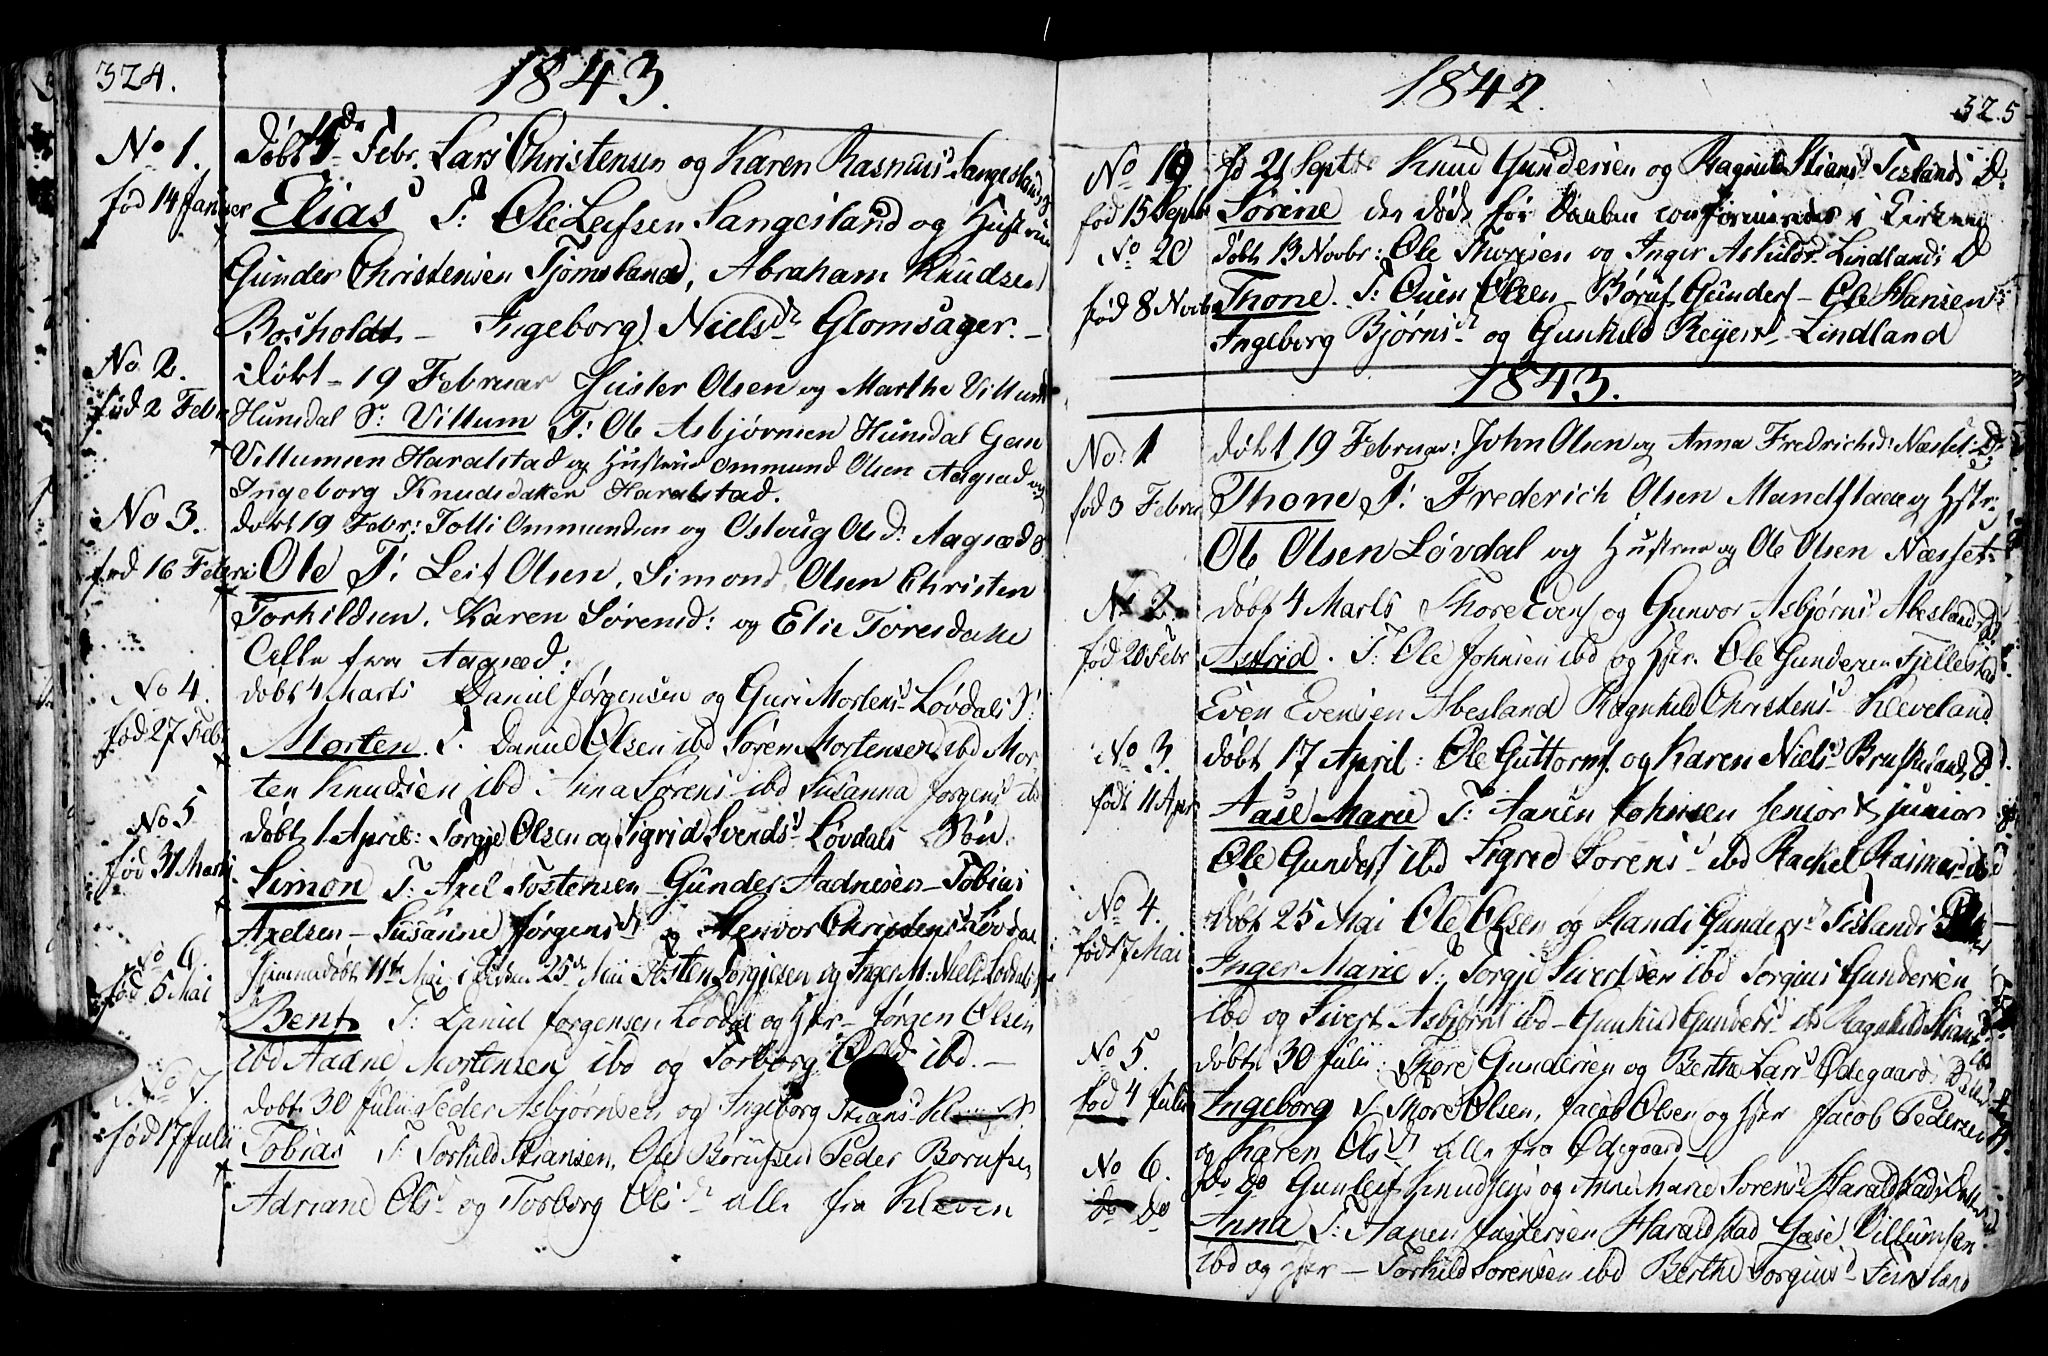 324.
1843.
No 1.
fød 14 Januer
Døbt Febr. Lars Christensen og Karen Rasmus Sangeslands S
Elias T: Ole Leifsen Sangesland og Hustrue
Gunder Christensen Tjomsland, Abraham Knudsen
Bosholdt — Ingeborg Nielsdr Glomsager. —
No 2.
fød 2 Febr
Døbt 19 Februar Gusler Olsen og Marthe Villumd
Hunsdal S: Villum T: Ole Asbjørnsen Hunsdal
Villumsen Haralstad og Hustrue Ommund Olsen Aagsæd og
Ingeborg Knudsdatter Haralstad.
No 3.
fød 16 Febri
døbt 19 Febr: Tolli Ommundsen og Oslaug Ols D: Aagsæds S
Ole T: Leif Olsen, Simond Olsen Christen
Torkildsen, Karen Sørensd: og Elie Toresdatte
Alle fra Aagsæd.
No 4.
fød 27 Febr
døbt 4 Marts Daniel Jørgensen og Guri Mortens Løvdals S:
Morten. T: Daniel Olsen ibd Søren Mortensen ibd Mor
ten Knudsen ibd Anna Sørens ibd Susanna Jørgens ibd
No 5
fød 31 Marti
døbt 1 April: Torgje Olsen og Sigrid Svends Løvdals Søn.
Simon T: Axel Tostensen — Gunder Aadnesen — Tobias
Axelsen — Susanne Jørgensdr og Christens Løvdal
No 6.
fød 5 Mai
hjemmedøbt 11te Mai i Kirken 25de Mai Tosten Torgjesen og Inger M: Niels Løvdals S
Bent T: Daniel Jørgensen Løvdal og Hstr — Jørgen Olsen
ibd Aadne Mortensen ibd og Torborg ibd. —
No 7.
fød 17 Julii
døbt 30 Julii Peder Asbjørnsen og Ingeborg Stians S.
Tobias T: Torkild Stiansen, Ole Børufsen Peder Børufsen
Adriane Ols og Torborg Olsdr alle fra Kleven
1842.
325
No 19
fød 15 Septr
fd 21 Septr Knud Gundersen og Ragnild Stians Fislands D.
Sørene der døde før Daaben confirmerdes i Kirken
No 20
fød 8 Novbr
døbt 13 Novbr: Ole Thoresen og Inger Aslulds Lindlands D
Thone. T: Ouen Olsen — Børuf Gunders — Ole Hansen
Ingeborg Bjørnsdr og Gunhild Reyers Lindland
1843.
No: 1
fød 3 Februar
døbt 19 Februar: John Olsen og Anna Fredrichsd: Næsset: D:
Thone T: Frederich Olsen Mandflaae og Hstr,
Ole Olsen Løvdal og Hustrue og Ole Olsen Næsset.
No 2.
fød 20 Febr
døbt 4 Marts Thore Evens og Gunvor Asbjørns Abeslands D.
Astrid. T: Ole Johnsen ibd og Hstr. Ole Gundersen Fjellestad
Even Evensen Abesland Ragnhild Christens Kleveland
No 3.
født 11 Apr
døbt 17 April: Ole Guttorms. og Karen Niels Bruskelands D.
Aase Marie T: Aanen Johnsen senior & junior
Ole Gunders ibd Sigrid Sørens ibd Rachel Rasmus ibd
No 4.
født 7 Mai
døbt 25 Mai Ole Olsen og Randi Gunders Fislands
Inger Marie T: Torgje Sivertsen ibd Torgius Gundersen
ibd og Sivert Asbjørns ibd — Gunhild Gunders ibd Ragnhild Stians ibd
No 5.
fød 4 Julii
døbt 30 Julii: Thore Gundersen og Berthe Lars Ødegaards Datter
Ingeborg T Thore Olsen, Jacob Olsen og Hstr Jacob Pedersen
og Karen Olsdr alle fra Ødegaard —
No 6.
do do
do do Gunleif Knudsens og Anne Marie Sørens Haraldstads Datter
Anna T: Aanen Haraldstad Villumsen
ibd og Hstr — Torkild Sørensen ibd Berthe Torgius Finsland